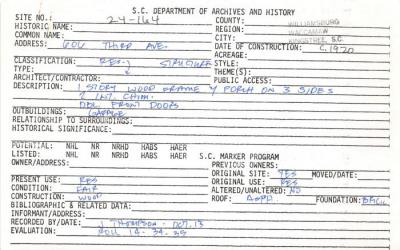 S.C. DEPARTMENT OF ARCHIVES AND HISTORY
SITE NO.: 24-164 COUNTY: WILLIAMSBURG
HISTORIC NAME: REGION: WACCAMAW
COMMON NAME: CITY: KINGSTREE, S.C.
ADDRESS: THIRD AVE. DATE OF CONSTRUCTION: C. 1920
ACREAGE:
CLASSIFICATION: RES. STRUCTURE STYLE:
TYPE: THEME(S):
ARCHITECT/CONTRACTOR: PUBLIC ACCESS:
DESCRIPTION: 1 STORY WOOD FRAME PORCH ON 3 SIDES
2 INT. CHIM.
DBL FRONT DOORS
OUTBUILDINGS: GARAGE
RELATIONSHIP TO SURROUNDINGS:
HISTORICAL SIGNIFICANCE:
POTENTIAL: NHL NR NRHD HABS HAER
LISTED: NHL NR NRHD HABS HAER S.C. MARKER PROGRAM
OWNER/ADDRESS: PREVIOUS OWNERS:
ORIGINAL SITE: YES MOVED/DATE:
PRESENT USE: RES ORIGINAL USE: RES
CONDITION: FAIR ALTERED/UNALTERED: NO
CONSTRUCTION: WOOD ROOF: ASPH. FOUNDATION: BRICK
BIBLIOGRAPHIC & RELATED DATA:
INFORMANT/ADDRESS:
RECORDED BY/DATE: J. THOMPSON - OCT. 13
EVALUATION: ROLL 14-34-35